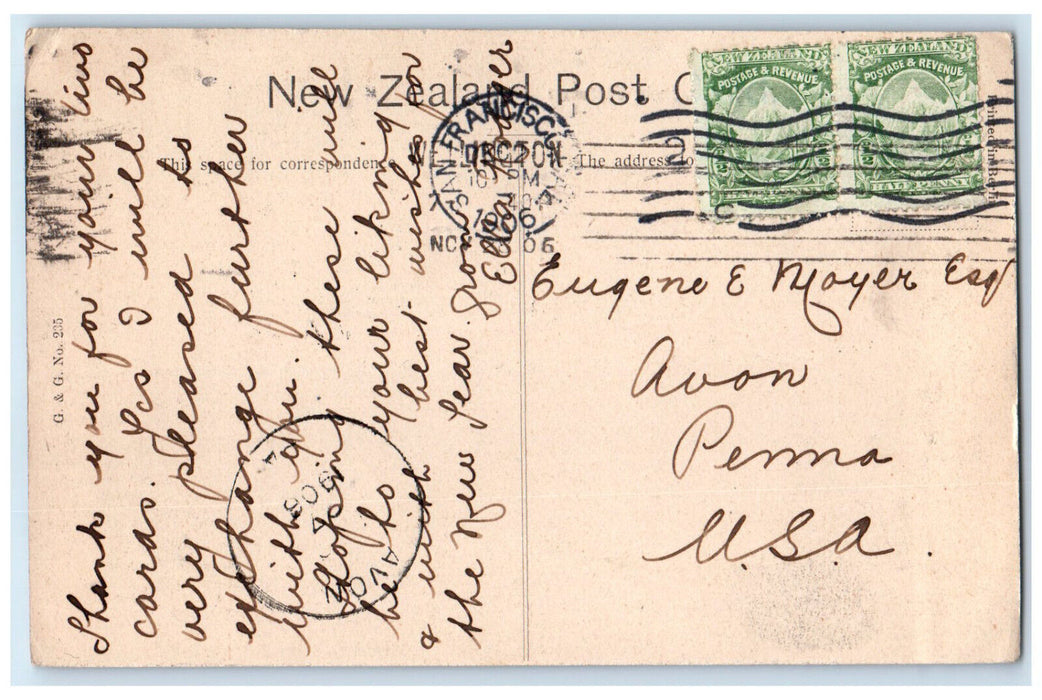 New Zealand Post C
This space for correspondence
The address
SAN FRANCISCO
DEC 20
10 PM
1906
NOV 06
NEW ZEALAND
POSTAGE & REVENUE
NEW ZEALAND
POSTAGE & REVENUE
HALF PENNY
G. & G. No. 235
Thank you for your two
cards. Yes I will be
very pleased to
exchange further
with you. these will
Hoping
be to your liking
& with best wishes for
the New Year from
Ella
Eugene E Moyer Esq
Avon
Penna
U.S.A.
AVON